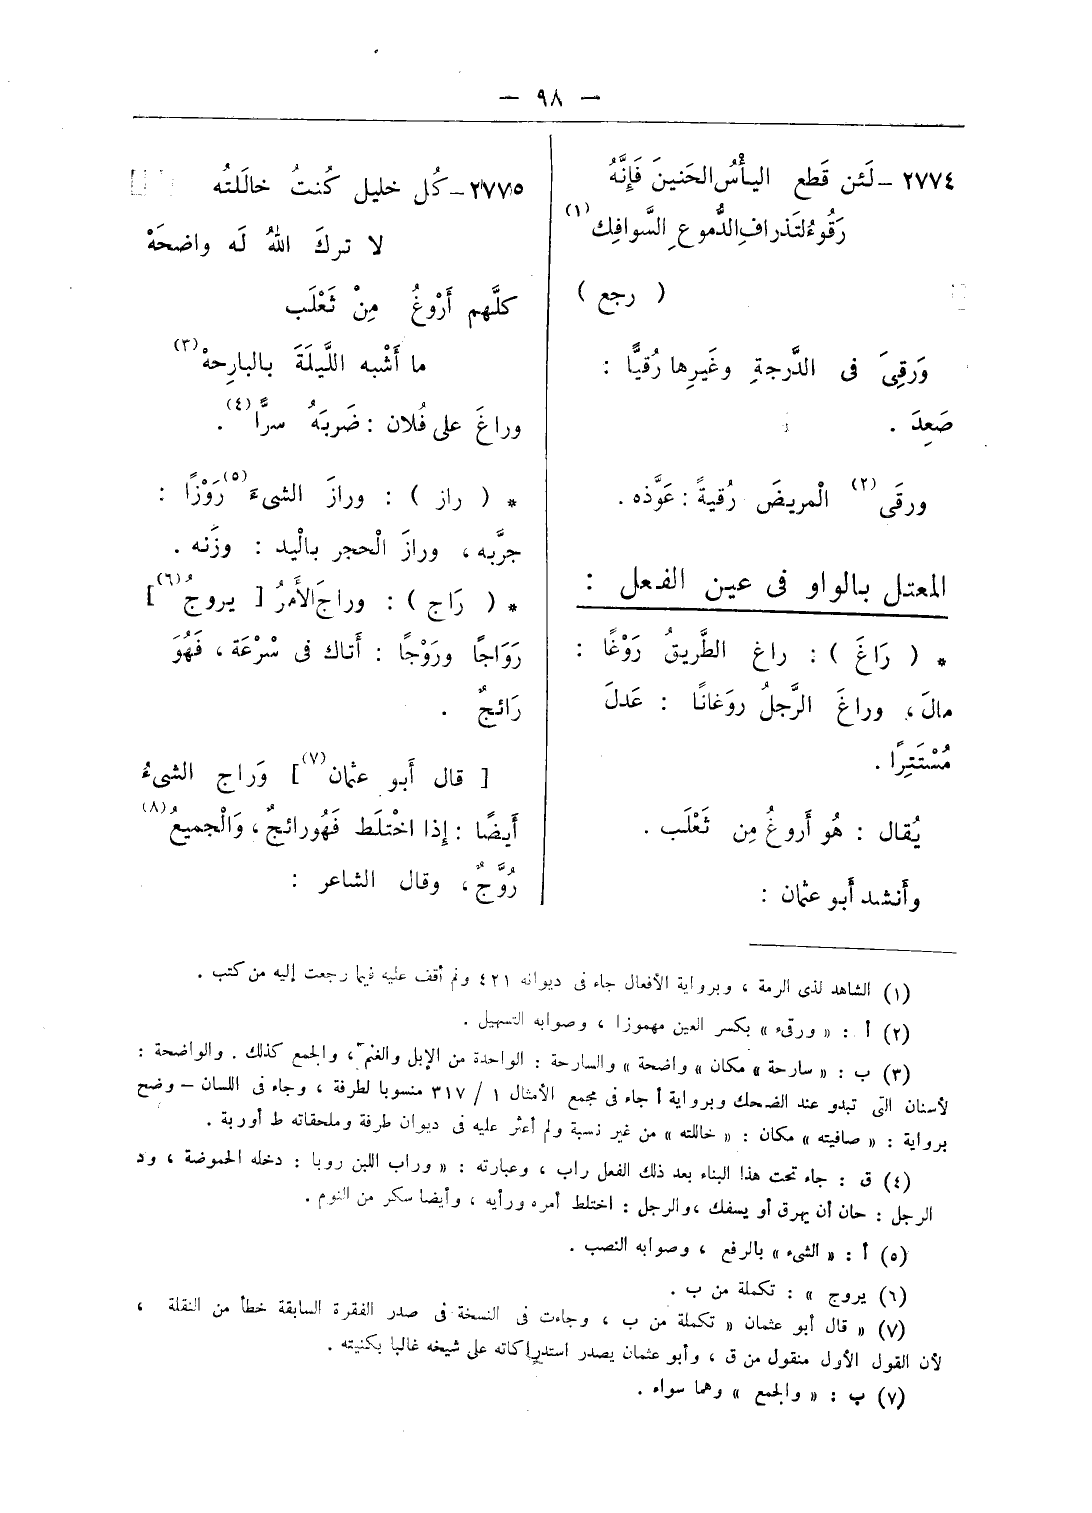 — ٩٨ —
٢٧٧٤ – لَئن قَطع اليأْسُ الحَنينَ فَإنَّهُ
رَقُوءُ لتَذرافِ الدُّموعِ السَّوافِك (١)
( رجع )
وَرقِىَ فى الدَّرجةِ وغَيرِها رُقيًّا :
صَعِدَ .
ورقَى (٢) الْمريضَ رُقيةً : عَوَّذه .
المعتل بالواو فى عين الفعل :
* ( رَاغَ ) : راغ الطَّريقُ رَوْغًا :
مالَ ، وراغَ الرَّجلُ روَغانًا : عَدلَ
مُسْتَتِرًا .
يُقال : هُو أَروغُ مِن ثَعْلَب .
وأَنشد أَبو عثمان :
٢٧٧٥ – كُل خليل كُنتُ خالَلتُه
لا تركَ اللهُ لَه واضحَهْ
كلَّهم أَرْوغُ مِنْ ثَعْلَب
ما أَشْبه اللَّيلَةَ بالبارِحهْ (٣)
وراغَ على فُلان : ضَربَهُ سرًّا (٤) .
* ( راز ) : ورازَ الشىءَ (٥) رَوْزًا :
جرَّبه ، ورازَ الْحجر بالْيد : وزَنه .
* ( رَاج ) : وراجَ الأَمرُ [ يروجُ (٦) ]
رَوَاجًا ورَوْجًا : أَتاك فى سْرْعَة ، فَهُوَ
رَائجٌ .
[ قال أَبو عثمان (٧) ] وَراج الشىءُ
أَيضًا : إذا اخْتلَط فَهُورائجٌ ، وَالْجميعُ (٨)
رُوَّجٌ ، وقال الشاعر :
(١) الشاهد لذى الرمة ، وبرواية الأفعال جاء فى ديوانه ٤٢١ ولم أقف عليه فيما رجعت إليه من كتب .
(٢) أ : « ورقىء » بكسر العين مهموزا ، وصوابه التسهيل .
(٣) ب : « سارحة » مكان » واضحة » والسارحة : الواحدة من الإبل والغنم ، والجمع كذلك . والواضحة :
لأسنان التى تبدو عند الضحك وبرواية أ جاء فى مجمع الأمثال ١ / ٣١٧ منسوبا لطرفة ، وجاء فى اللسان – وضح
برواية : « صافيته » مكان : « خاللته » من غير نسبة ولم أعثر عليه فى ديوان طرفة وملحقاته ط أوربة .
(٤) ق : جاء تحت هذا البناء بعد ذلك الفعل راب ، وعبارته : « وراب اللبن روبا : دخله الحموضة ، ود
الرجل : حان أن يهرق أو يسفك ، والرجل : اختلط أمره ورأيه ، وأيضا سكر من النوم .
(٥) أ : « الشىء » بالرفع ، وصوابه النصب .
(٦) يروج » : تكملة من ب .
(٧) « قال أبو عثمان « تكملة من ب ، وجاءت فى النسخة فى صدر الفقرة السابقة خطأ من النقلة ،
لأن القول الأول منقول من ق ، وأبو عثمان يصدر استدراكاته على شيخه غالبا بكنيته .
(٧) ب : « والجمع » وهما سواء .